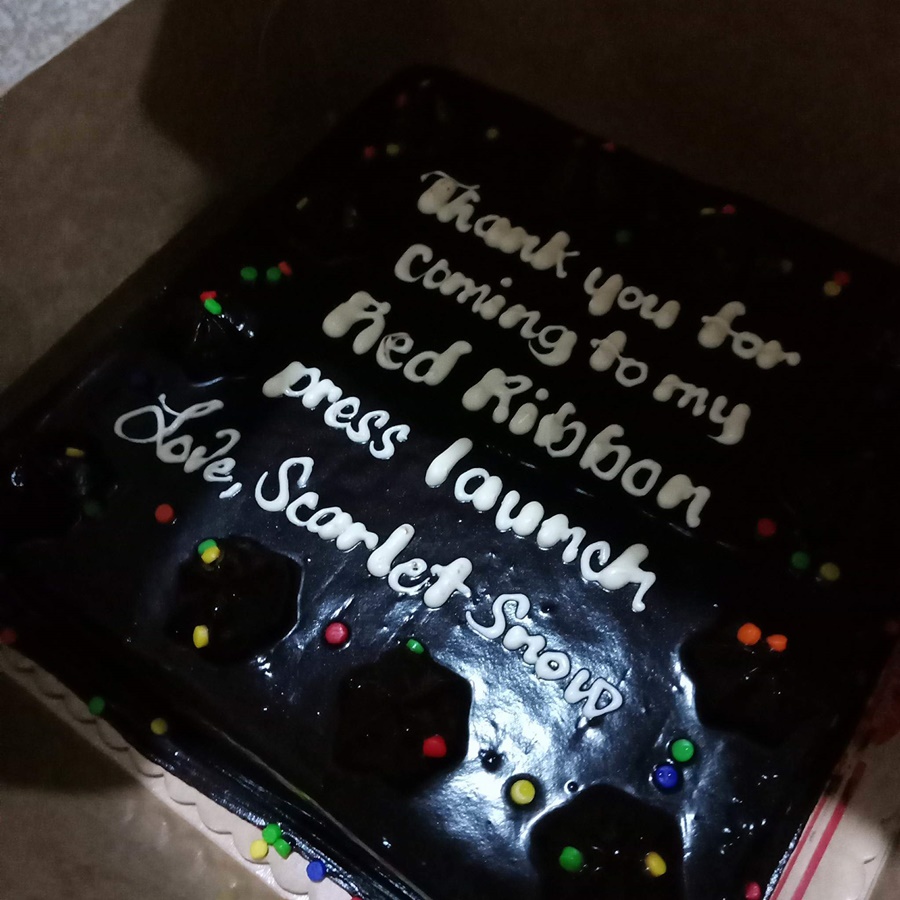 Thank you for
coming to my
Red Ribbon
press launch
Love, Scarlet Snow